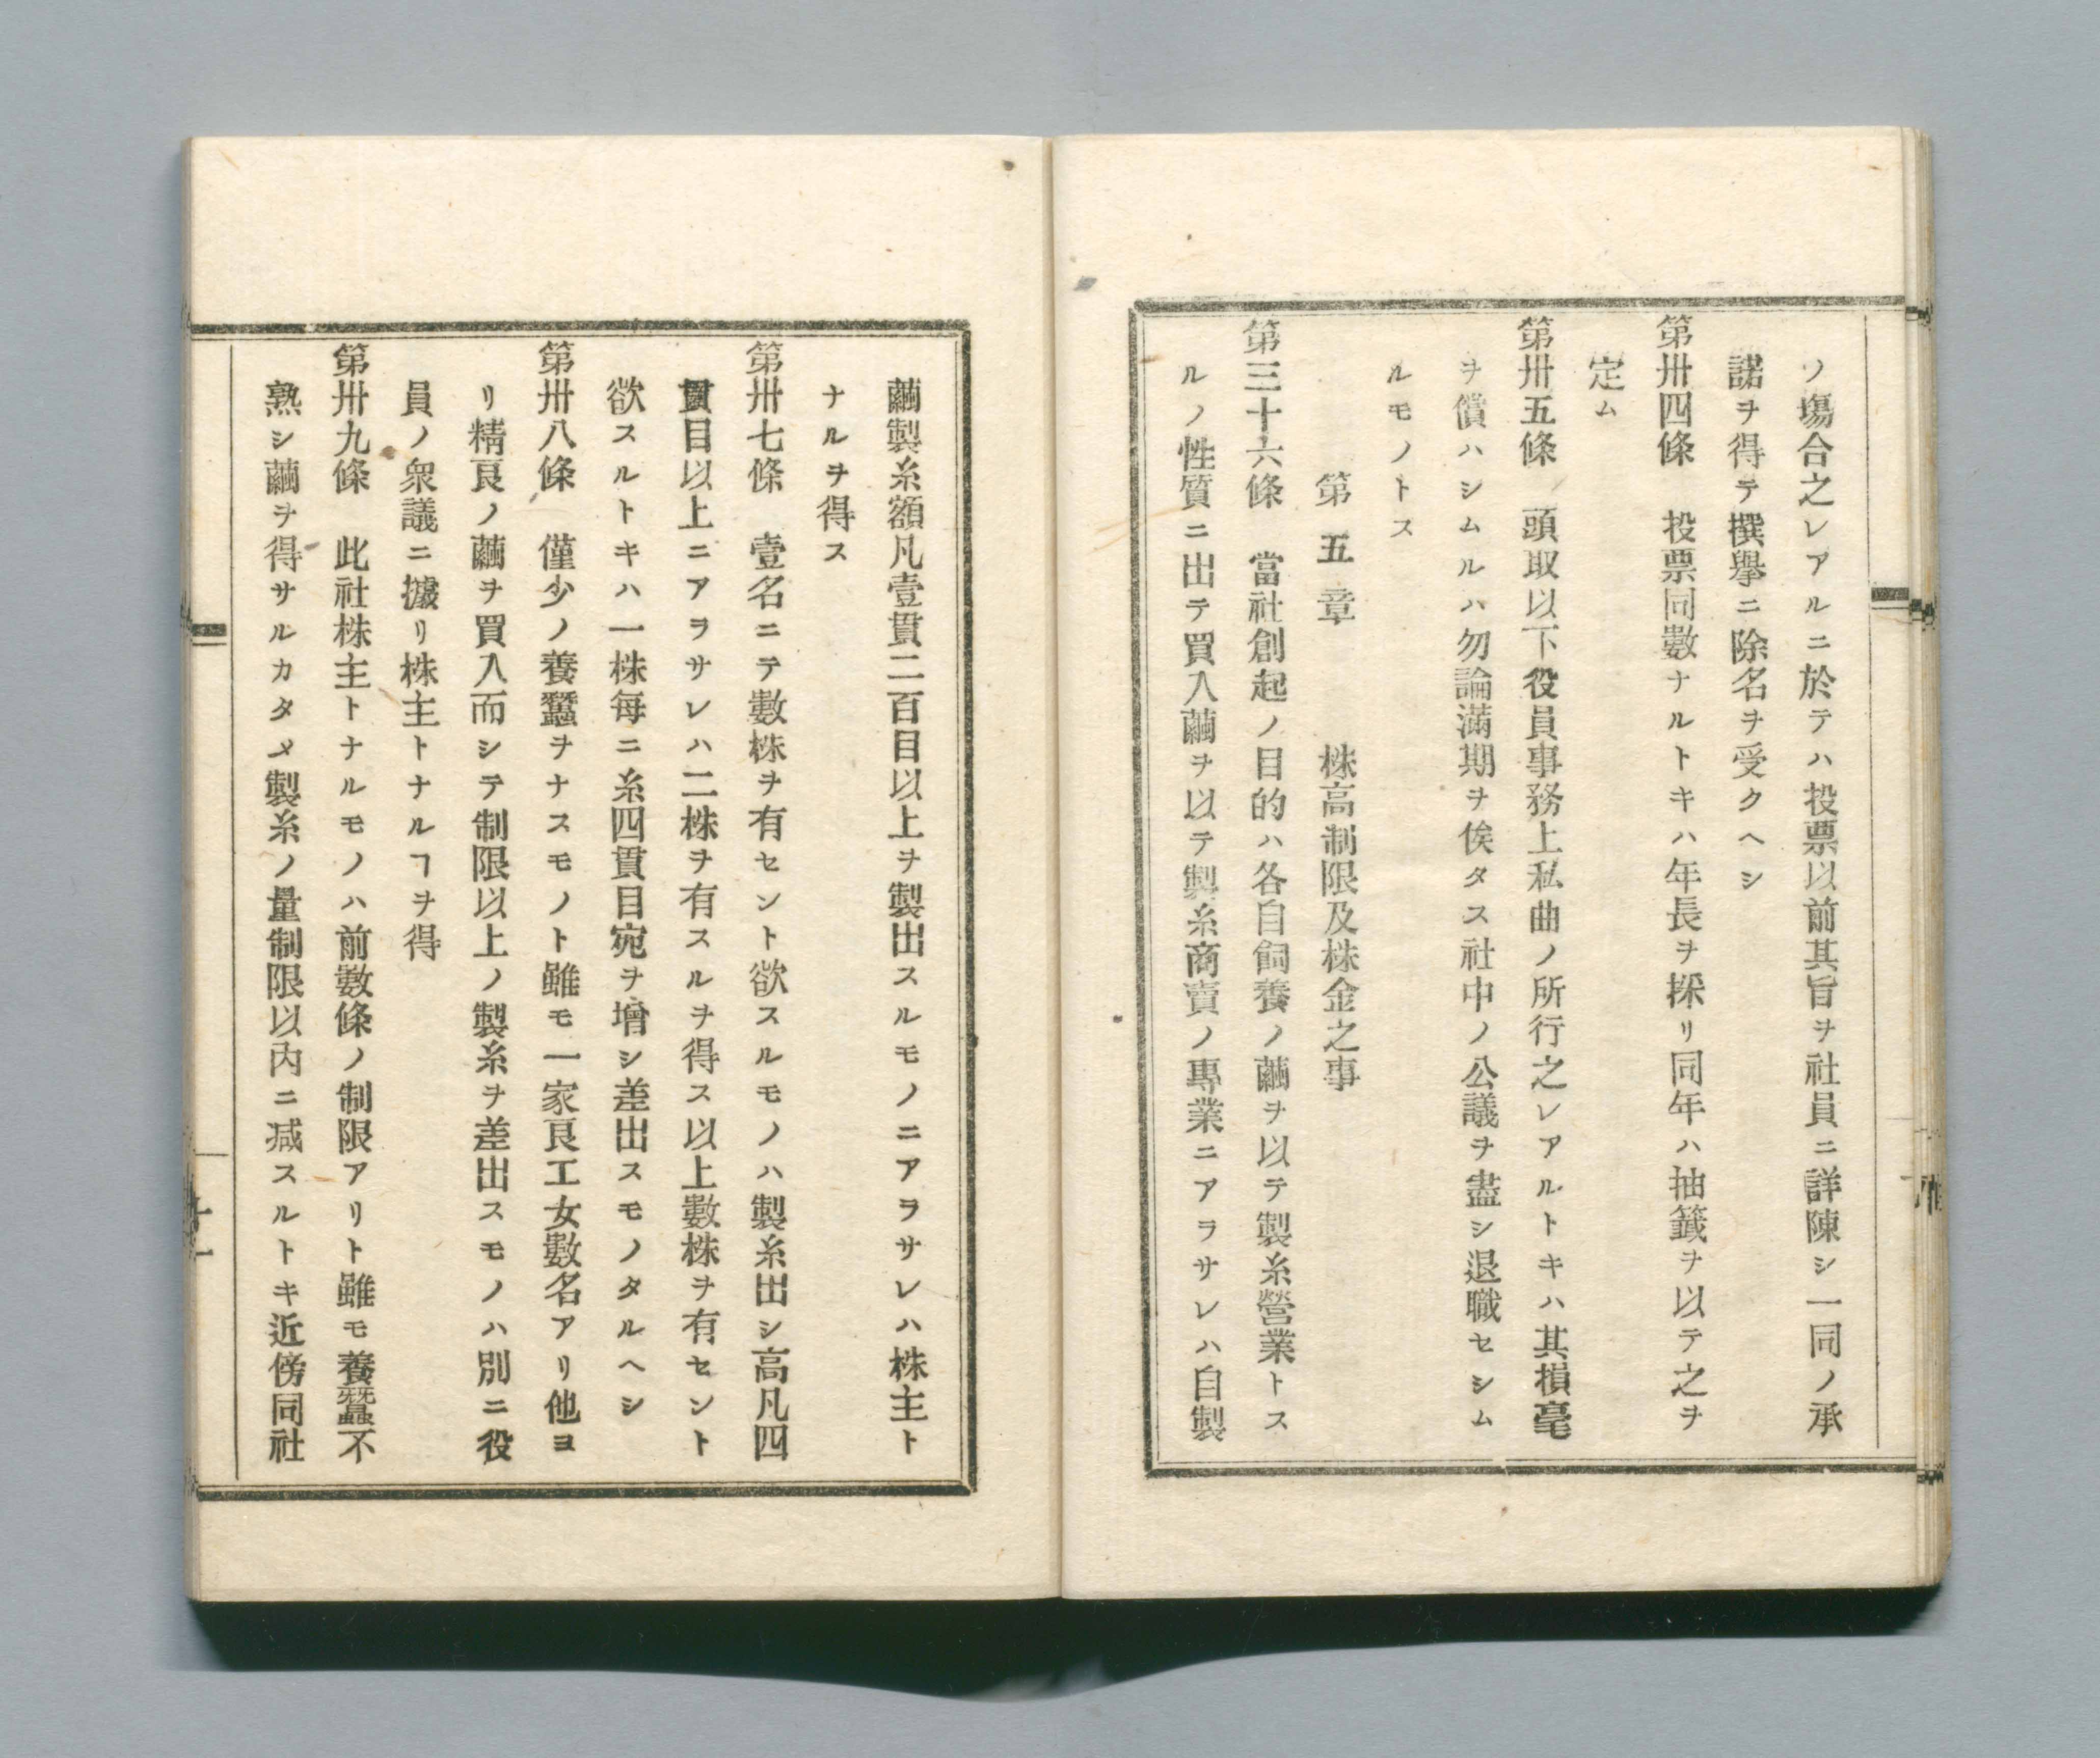 ノ塲合之レアルニ於テハ投票以前其旨ヲ社員ニ詳陳シ一同ノ承
諾ヲ得テ撰擧ニ除名ヲ受クヘシ
第卅四條　投票同數ナルトキハ年長ヲ採リ同年ハ抽籤ヲ以テ之ヲ
定ム
第卅五條　頭取以下役員事務上私曲ノ所行之レアルトキハ其損毫
ヲ償ハシムルハ勿論滿期ヲ俟タス社中ノ公議ヲ盡シ退職セシム
ルモノトス
第五章　株高制限及株金之事
第三十六條　當社創起ノ目的ハ各自飼養ノ繭ヲ以テ製糸營業トス
ルノ性質ニ出テ買入繭ヲ以テ製糸商賣ノ專業ニアラサレハ自製
繭製糸額凡壹貫二百目以上ヲ製出スルモノニアラサレハ株主ト
ナルヲ得ス
第卅七條　壹名ニテ數株ヲ有セント欲スルモノハ製糸出シ高凡四
貫目以上ニアラサレハ二株ヲ有スルヲ得ス以上數株ヲ有セント
欲スルトキハ一株每ニ糸四貫目宛ヲ增シ差出スモノタルヘシ
第卅八條　僅少ノ養蠶ヲナスモノト雖モ一家良工女數名アリ他ヨ
リ精良ノ繭ヲ買入而シテ制限以上ノ製糸ヲ差出スモノハ別ニ役
員ノ衆議ニ據リ株主トナルヿヲ得
第卅九條　此社株主トナルモノハ前數條ノ制限アリト雖モ養蠶不
熟シ繭ヲ得サルカタメ製糸ノ量制限以內ニ减スルトキ近傍同社